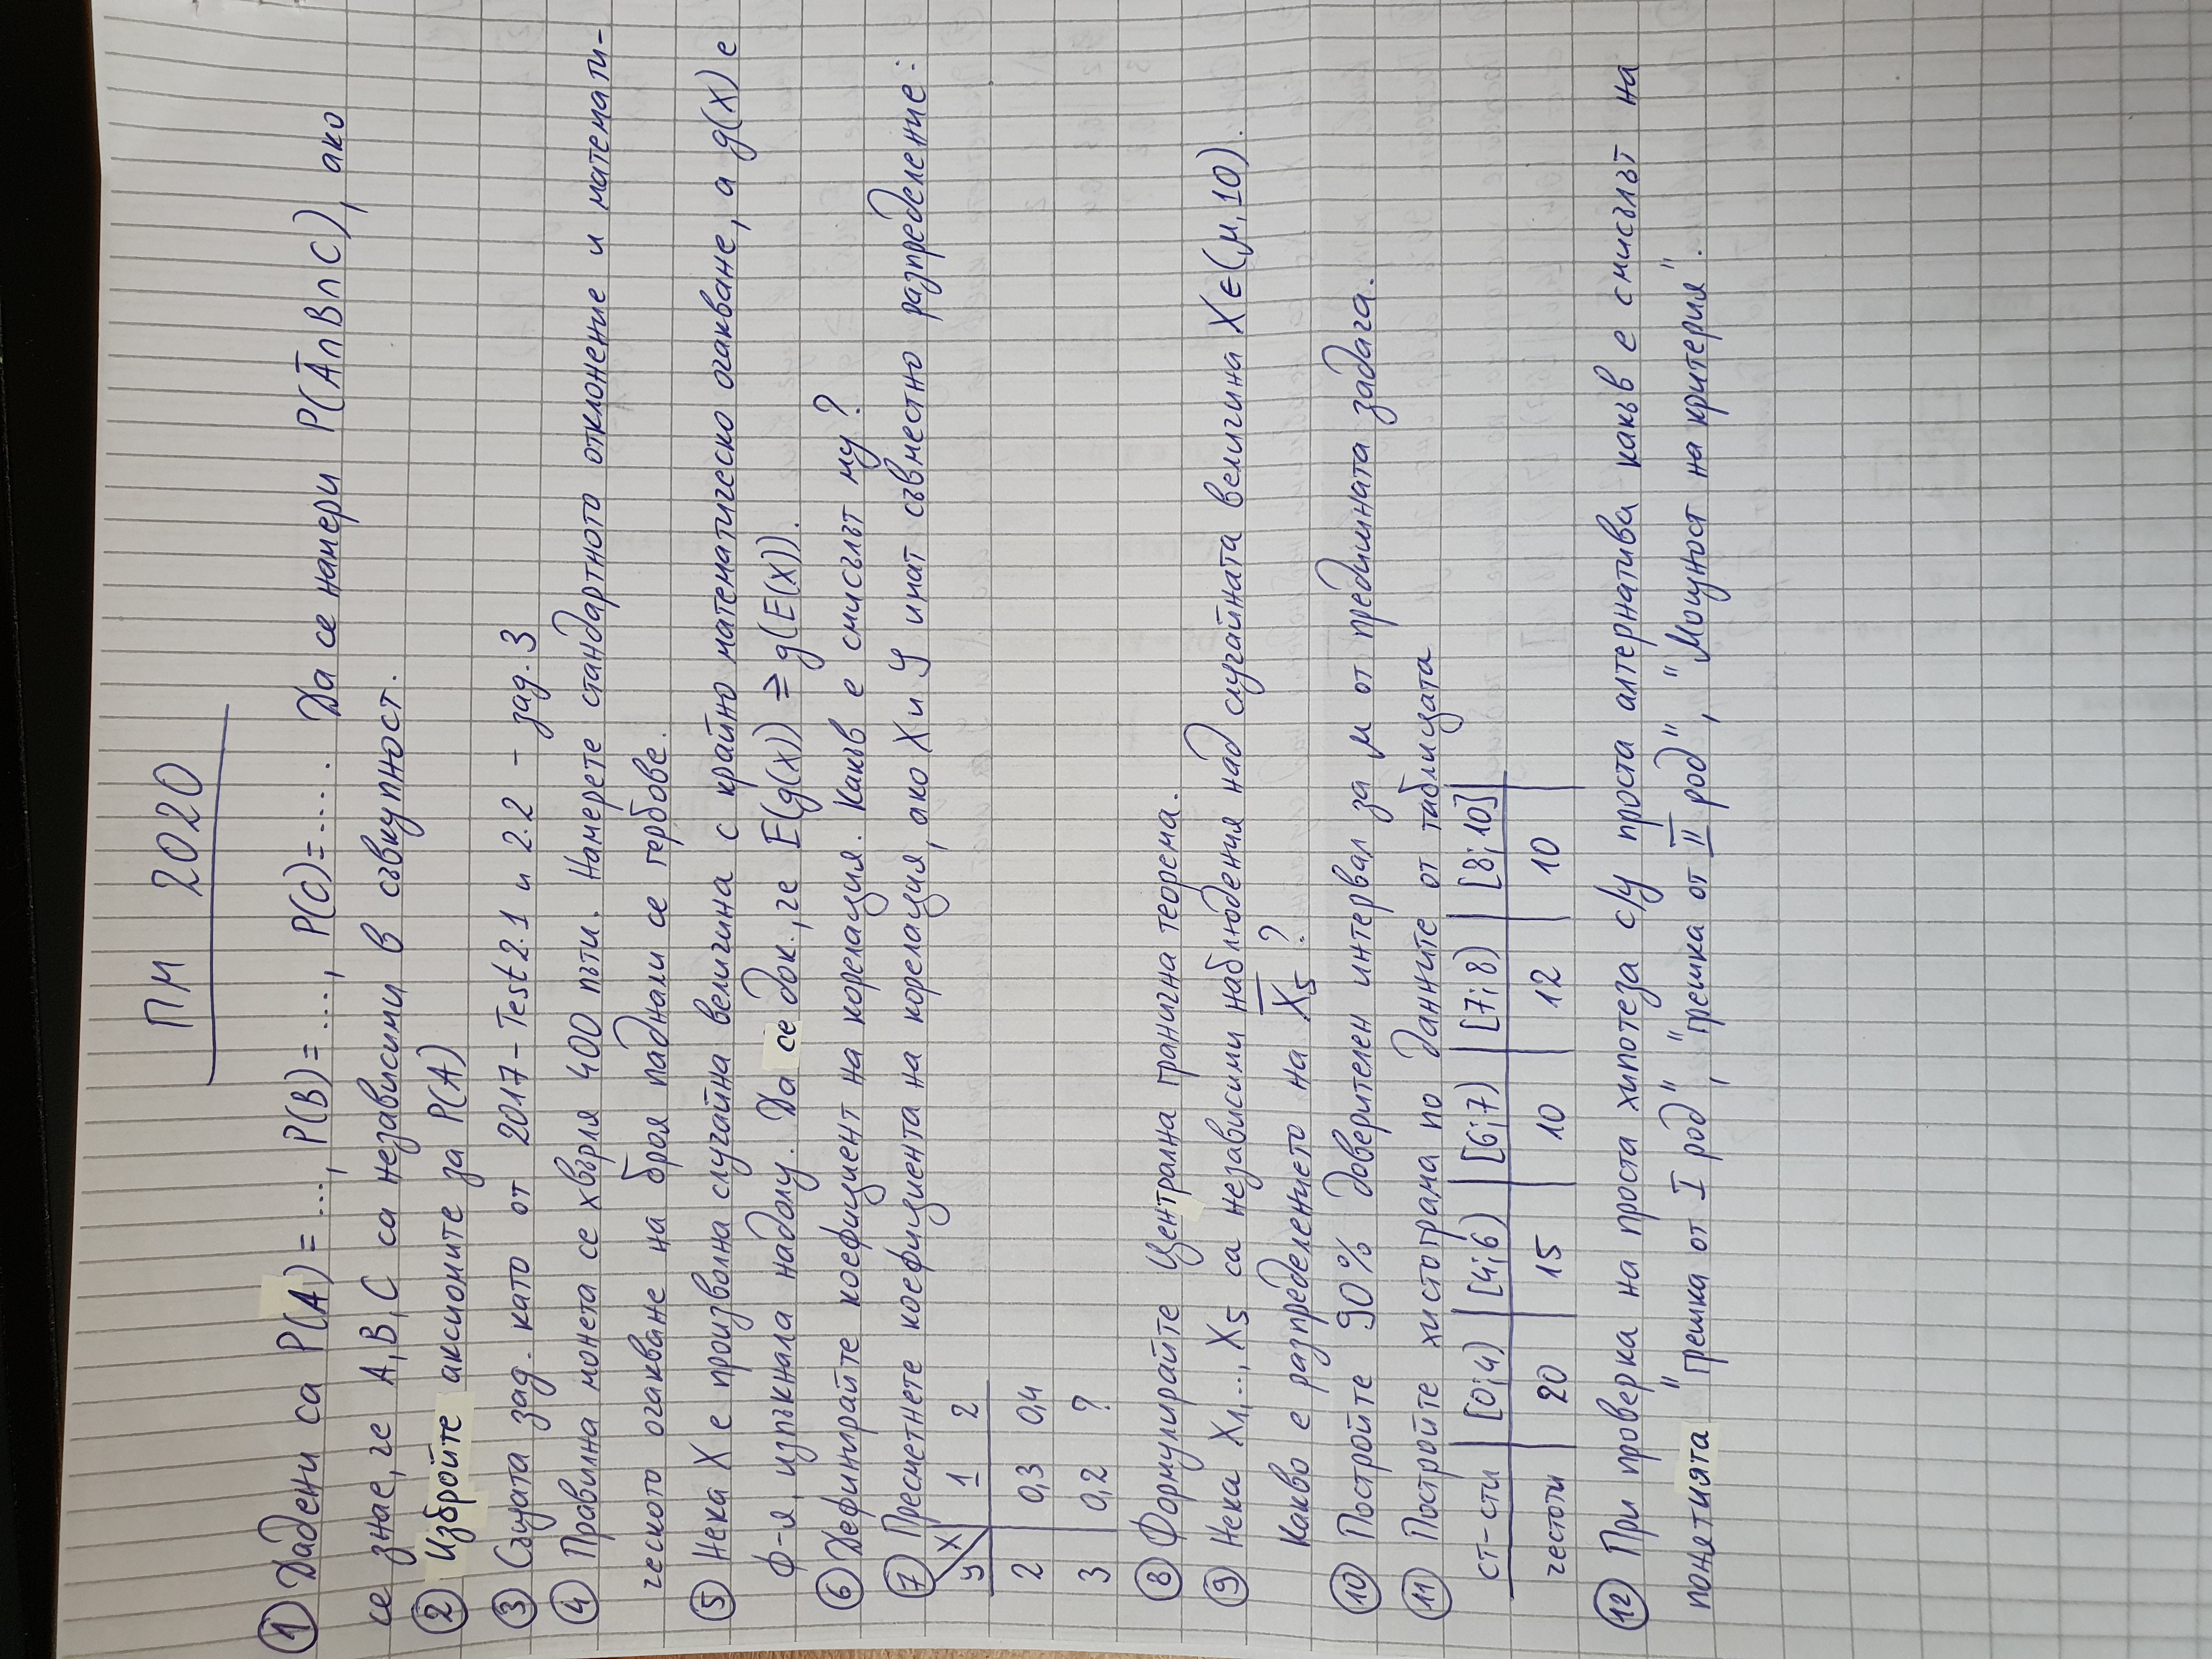 ПМ 2020
① Дадени са P(A) = ..., P(B) = ..., P(C) = .... Да се намери P(Ā∩B∩C), ако
се знае, че A, B, C са независими в съвкупност.
② Избройте аксиомите за P(A)
③ Същата зад. като от 2017 - Test 2.1 и 2.2 - зад. 3
④ Правилна монета се хвърля 400 пъти. Намерете стандартното отклонение и математи-
ческото очакване на броя паднали се гербове.
⑤ Нека X е произволна случайна величина с крайно математическо очакване, а g(X) е
ф-я, изпъкнала надолу. Да се док., че E(g(X)) ≥ g(E(X)).
⑥ Дефинирайте коефициент на корелация. Какъв е смисълът му?
⑦ Пресметнете коефициента на корелация, ако X и У имат съвместно разпределение:
У\X 1 2
2 0,3 0,4
3 0,2 ?
⑧ Формулирайте Централна гранична теорема.
⑨ Нека X₁, ..., X₅ са независими наблюдения над случайната величина X ∈ (μ, 10).
Какво е разпределението на X̅₅?
⑩ Постройте 90% доверителен интервал за μ от предишната задача.
⑪ Постройте хистограма по данните от таблицата
ст-сти | [0;4) | [4;6) | [6;7) | [7;8) | [8;10] |
честоти | 20 | 15 | 10 | 12 | 10 |
⑫ При проверка на проста хипотеза с/у проста алтернатива какъв е смисълът на
понятията "грешка от I род", "грешка от II род", "Мощност на критерия".